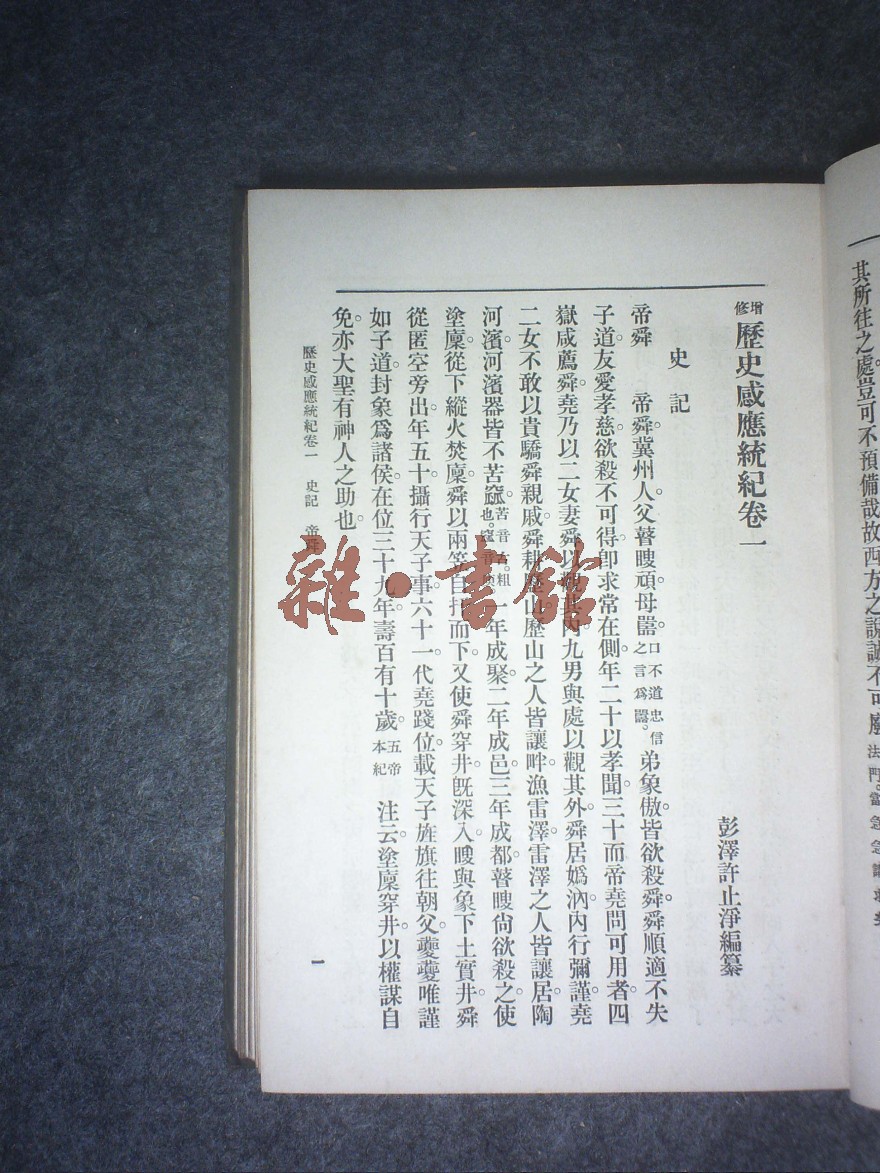 其所往之處豈可不預備哉故西方之説誠不可廢
增修歷史感應統紀卷一
彭澤許止淨編纂
史記
帝舜 帝舜。冀州人。父瞽瞍頑。母嚚。口不道忠信之言爲嚚。弟象傲。皆欲殺舜。舜順適不失
子道。友愛孝慈。欲殺不可得。卽求常在側。年二十以孝聞。三十而帝堯問可用者。四
嶽咸薦舜。堯乃以二女妻舜以觀其內。九男與處以觀其外。舜居嬀汭。內行彌謹。堯
二女不敢以貴驕舜親戚。舜耕歷山。歷山之人皆讓畔。漁雷澤。雷澤之人皆讓居。陶
河濱。河濱器皆不苦窳。苦音 粗也。窳 年成聚。二年成邑。三年成都。瞽瞍尙欲殺之。使
塗廩。從下縱火焚廩。舜以兩笠自扞而下。又使舜穿井。旣深入。瞍與象下土實井。舜
從匿空旁出。年五十攝行天子事。六十一代堯踐位。載天子旌旗往朝父。夔夔唯謹
如子道。封象爲諸侯。在位三十九年。壽百有十歲。五帝本紀 注云。塗廩穿井。以權謀自
免。亦大聖有神人之助也。
歷史感應統紀卷一 史記 帝舜
一
雜·書館